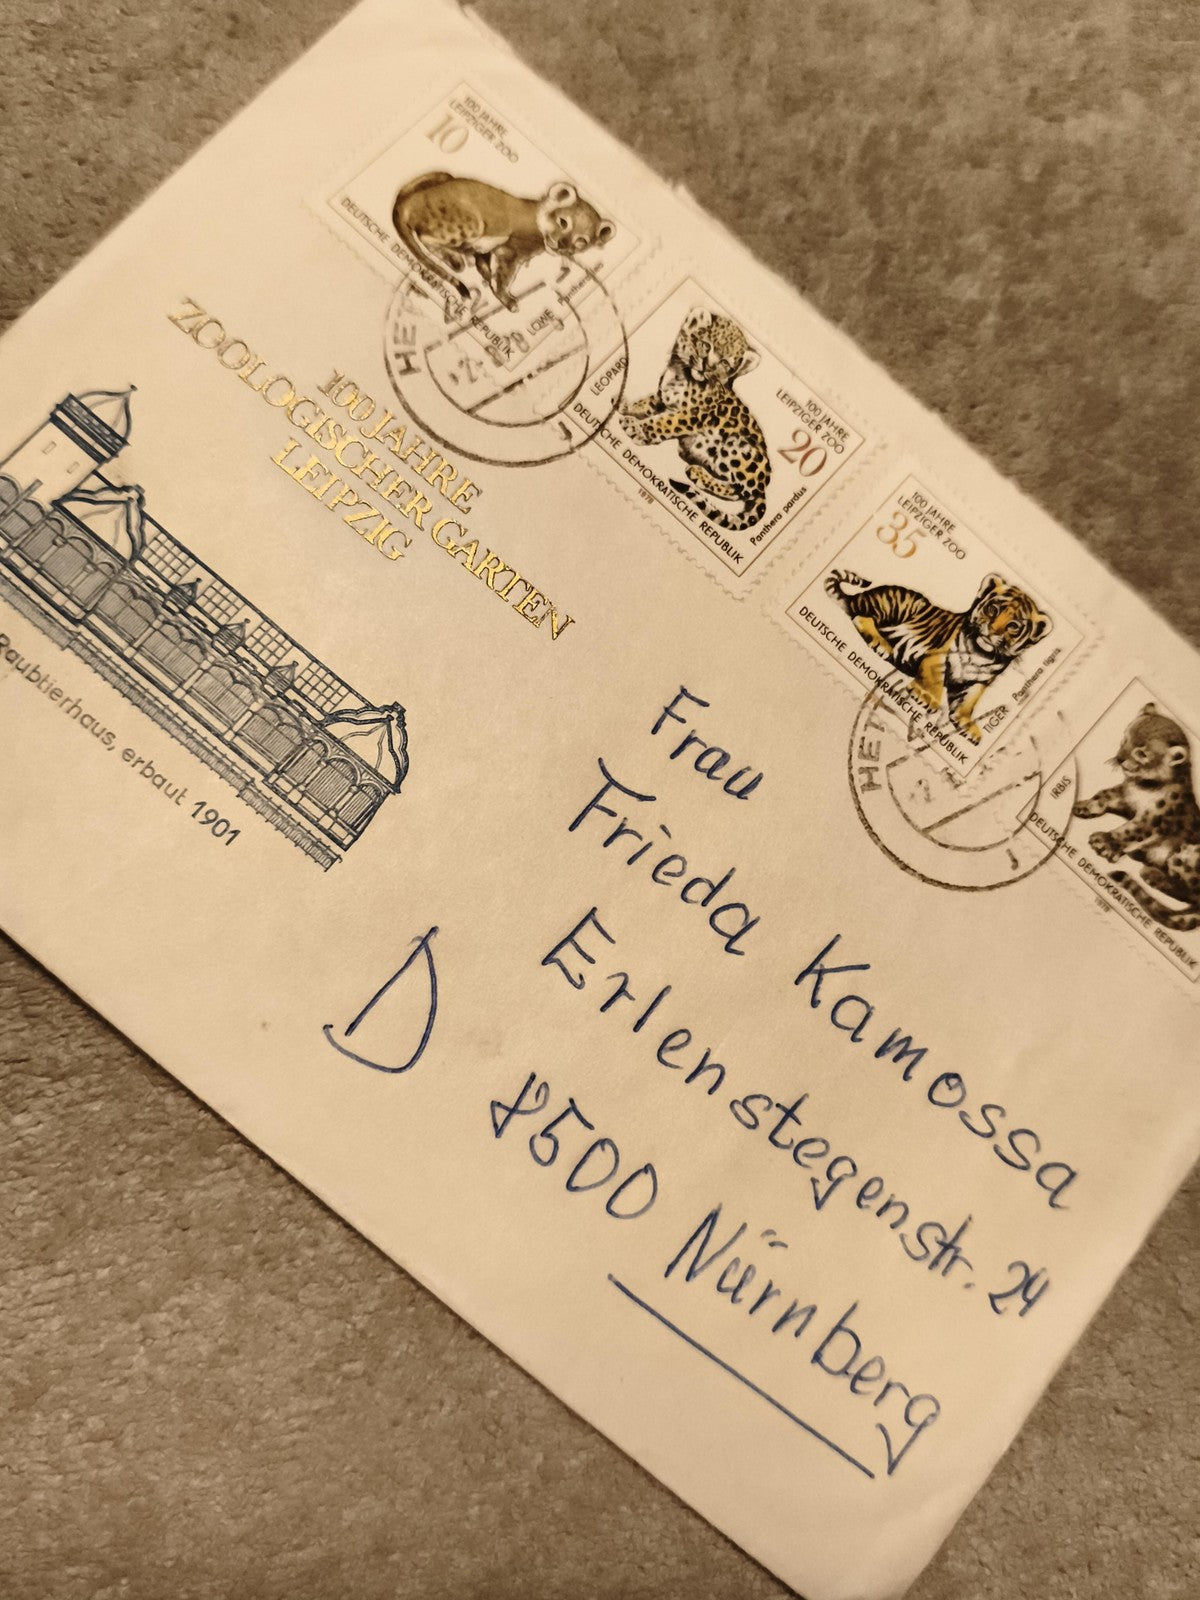 100 JAHRE
LEIPZIGER ZOO
10
DEUTSCHE DEMOKRATISCHE REPUBLIK
LÖWE Panthera
LEOPARD
100 JAHRE
LEIPZIGER ZOO
20
DEUTSCHE DEMOKRATISCHE REPUBLIK
Panthera pardus
1978
100 JAHRE
LEIPZIGER ZOO
35
DEUTSCHE DEMOKRATISCHE REPUBLIK
TIGER Panthera tigris
IRBIS
DEUTSCHE DEMOKRATISCHE REPUBLIK
1978
HETT
1
HETT
1
100 JAHRE
ZOOLOGISCHER GARTEN
LEIPZIG
Raubtierhaus, erbaut 1901
Frau
Frieda Kamossa
Erlenstegenstr. 24
D 8500 Nürnberg